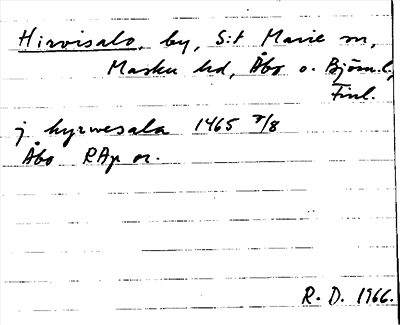 Hirvisalo, by, S:t Marie sn,
Masku hd, Åbo o. Björn.l.,
Finl.
j hyrwesala 1465 7/8
Åbo RAp or.
R. D. 1966.